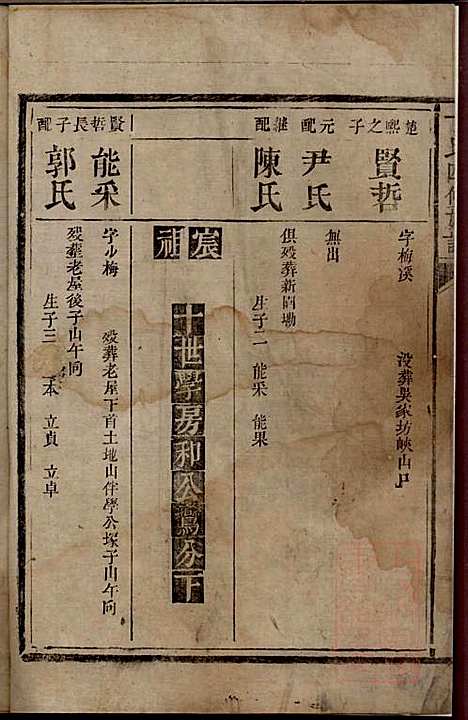 楚熙之子
賢哲
字梅溪
没葬吳家坊峽山口
元配
尹氏
無出
継配
陳氏
俱殁葬新園坳
生子二 能采 能果
宸祖
十世學房和公鸞分下
賢哲長子
能采
字少梅
殁葬老屋下首土地山伴學公塚子山午向
配
郭氏
殁葬老屋後子山午向
生子三 立本 立貞 立卓